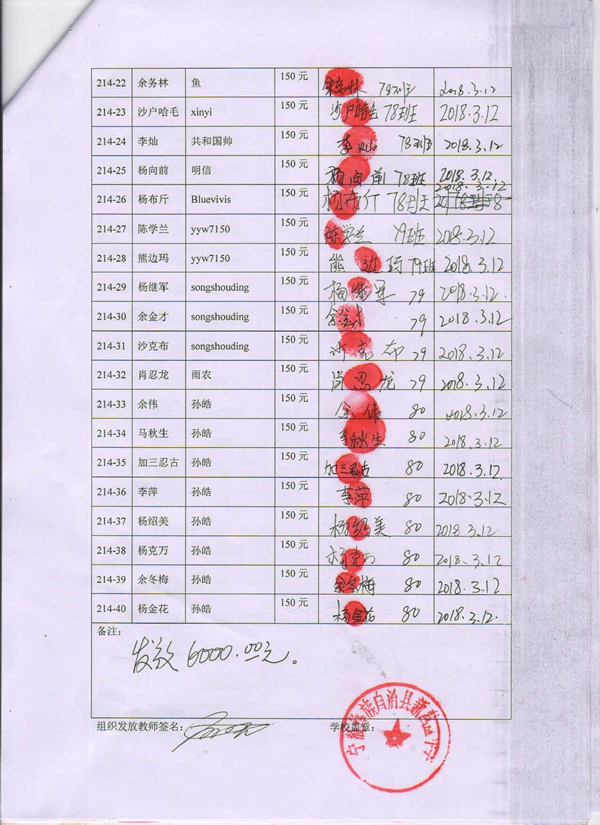 214-22 余务林 鱼 150元 余务林 79班 2018.3.12
214-23 沙户哈毛 xinyi 150元 沙户哈毛 78班 2018.3.12
214-24 李灿 共和国帅 150元 李灿 78班 2018.3.12
214-25 杨向前 明信 150元 杨向前 78班 2018.3.12.
214-26 杨布斤 Bluevivis 150元 杨布斤 78班 2018.3.12
214-27 陈学兰 yyw7150 150元 陈学兰 79班 2018.3.12
214-28 熊边玛 yyw7150 150元 熊边玛 79班 2018.3.12
214-29 杨继军 songshouding 150元 杨继军 79 2018.3.12.
214-30 余金才 songshouding 150元 余金才 79 2018.3.12
214-31 沙克布 songshouding 150元 沙克布 79 2018.3.12
214-32 肖忍龙 雨农 150元 肖忍龙 79 2018.3.12
214-33 余伟 孙皓 150元 余伟 80 2018.3.12
214-34 马秋生 孙皓 150元 秋生 80 2018.3.12
214-35 加三忍古 孙皓 150元 加三忍古 80 2018.3.12
214-36 李萍 孙皓 150元 李萍 80 2018.3.12
214-37 杨绍美 孙皓 150元 杨绍美 80 2018.3.12
214-38 杨克万 孙皓 150元 杨克万 80 2018.3.12
214-39 余冬梅 孙皓 150元 余冬梅 80 2018.3.12
214-40 杨金花 孙皓 150元 杨金花 80 2018.3.12.
备注：
发放6000.00元。
组织发放教师签名： 学校盖章：
族自治县新